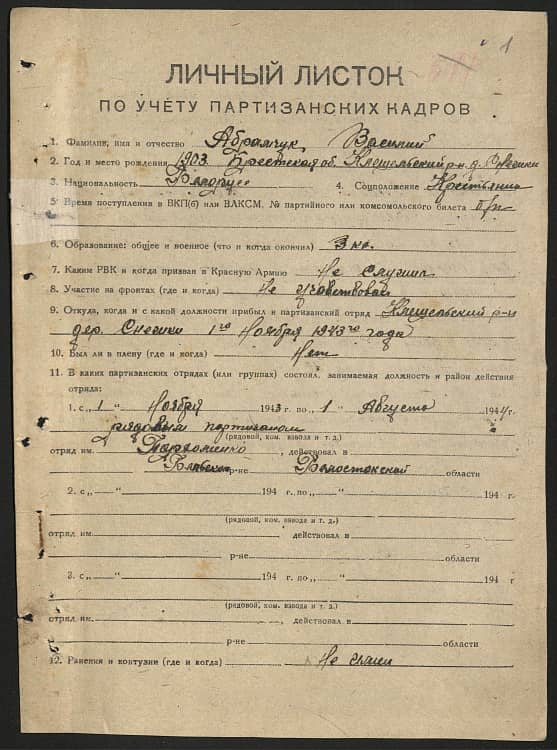 1
ЛИЧНЫЙ ЛИСТОК
ПО УЧЁТУ ПАРТИЗАНСКИХ КАДРОВ
1. Фамилия, имя и отчество Абрамчук Василий
2. Год и место рождения 1903. Брестская об. Клещельский р-н д.
3. Национальность 4. Соцположение Крестьянин
5. Время поступления в ВКП(б) или ВЛКСМ, № партийного или комсомольского билета б/п
6. Образование: общее и военное (что и когда окончил) 3 кл.
7. Каким РВК и когда призван в Красную Армию Не служил
8. Участие на фронтах (где и когда) Не участвовал
9. Откуда, когда и с какой должности прибыл в партизанский отряд Клещельский р-н
дер. 1го Ноября 1943го года
10. Был ли в плену (где и когда) Нет
11. В каких партизанских отрядах (или группах) состоял, занимаемая должность и район действия
отряда:
1. с „1" Ноября 1943 г. по „1" Августа 1944 г.
рядовым партизаном
(рядовой, ком. взвода и т. д.)
отряд им. Пархоменко, действовал в
Бельском р-не Белостокской области
2. с „ " 194 г. по „ " 194 г.
(рядовой, ком. взвода и т. д.)
отряд им. действовал в
р-не области
3. с „ " 194 г. по „ " 194 г
(рядовой, ком. взвода и т. д.)
отряд им. , действовал в
р-не области
12. Ранения и контузии (где и когда) Не